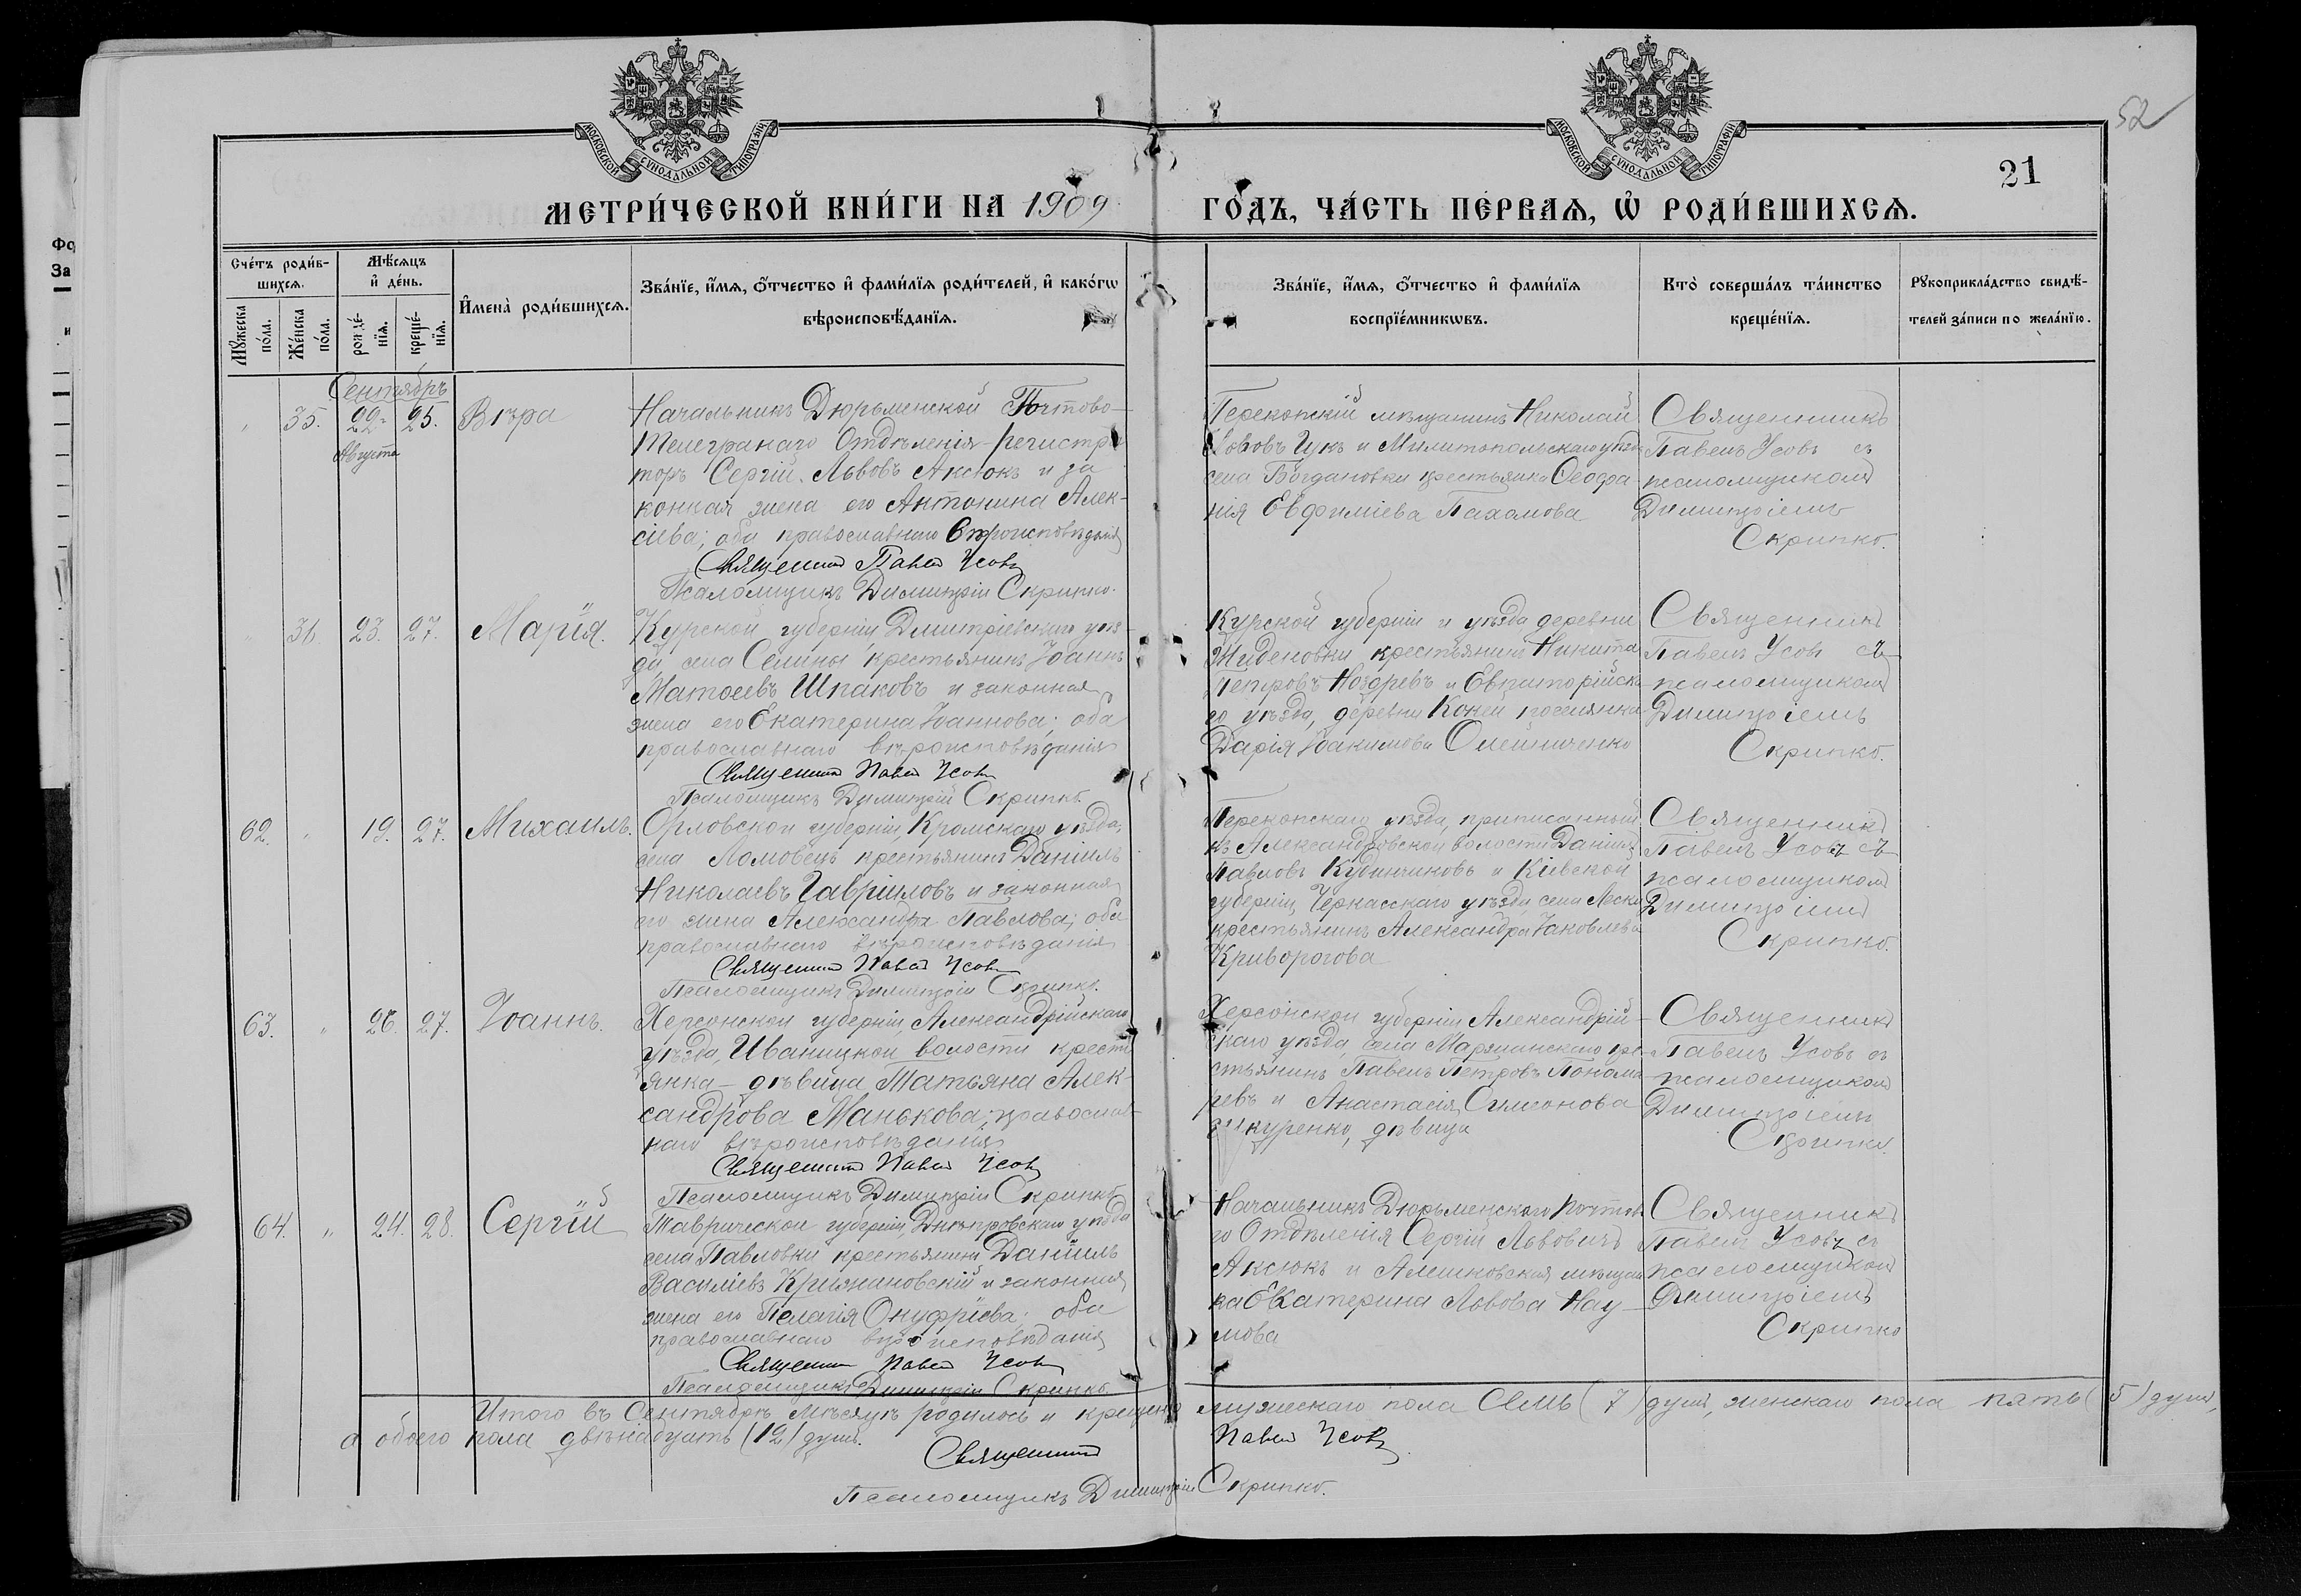 52
21
МОСКОВСКОЙ СѴНОДАЛЬНОЙ ТИПОГРАФІИ
МОСКОВСКОЙ СѴНОДАЛЬНОЙ ТИПОГРАФІИ
МЕТРИ́ЧЕСКОЙ КНИ́ГИ НА 1909
ГО́ДЪ, ЧА́СТЬ ПЕ́РВАѦ, Ѽ РОДИ́ВШИХСѦ.
Сче́тъ роди́в-
шихсѧ.
Мꙋ́жеска по́ла.
Же́нска по́ла.
Мѣ́сѧцъ
и҆ де́нь.
рожде́-нїѧ.
креще́-нїѧ.
И҆мена̀ роди́вшихсѧ.
Зва́нїе, и҆́мѧ, ѻ҆́тчество и҆ фами́лїѧ роди́телей, и҆ како́гѡ
вѣроисповѣ́данїѧ.
Зва́нїе, и҆́мѧ, ѻ҆́тчество и҆ фами́лїѧ
воспрїе́мникѡвъ.
Кто̀ соверша́лъ та́инство
креще́нїѧ.
Рꙋкоприкла́дство свидѣ́-
телей за́писи по жела́нїю.
Сентябрь
35. 22 25. Вѣра
Августа
Начальникъ Дюрьменской Почтово-
Телеграфнаго Отдѣленія – регистра
торъ Сергій Львовъ Аксюкъ и за
конная жена его Антонина Алек-
сіева; оба православнаго вѣроисповѣданія
Священникъ Павелъ Усовъ
Псаломщикъ Димитрій Скрипко.
Перекопскій мѣщанинъ Николай
Львовъ Цукъ и Милитопольскаго уѣзда
села Богдановки крестьянка Ѳеофа
нія Евфиміева Пахомова
Священникъ
Павелъ Усовъ съ
псаломщикомъ
Димитріемъ
Скрипко.
36. 23. 27. Марія.
Курской губерніи, Дмитріевскаго уѣз-
да, села Селины крестьянинъ Іоаннъ
Матѳеевъ Шпаковъ и законная
жена его Екатерина Іоаннова; оба
православнаго вѣроисповѣданія
Священникъ Павелъ Усовъ
Псаломщикъ Димитрій Скрипко.
Курской губерніи и уѣзда деревни
Жиденовки крестьянинъ Никита
Петровъ Ноздревъ и Евпаторійска
го уѣзда, деревни Кокеи поселянка
Дарія Іоакимова Олейниченко
Священникъ
Павелъ Усовъ съ
псаломщикомъ
Димитріемъ
Скрипко.
62. 19. 27. Михаилъ.
Орловской губерніи, Кромскаго уѣзда,
села Ломовецъ крестьянинъ Даніилъ
Николаевъ Гавриловъ и законная
его жена Александра Павлова; оба
православнаго вѣроисповѣданія
Священникъ Павелъ Усовъ
Псаломщикъ Димитрій Скрипко.
Перекопскаго уѣзда, приписанный
къ Александровской волости Даніилъ
Павловъ Кудинчиковъ и Кіевской
губерніи, Черкасскаго уѣзда, села Лески
крестьянинъ Александра Іаковлева
Криворогова
Священникъ
Павелъ Усовъ съ
псаломщикомъ
Димитріемъ
Скрипко.
63. 26. 27. Іоаннъ.
Херсонской губерніи, Александрійскаго
уѣзда, Иваницкой волости кресть
янка – дѣвица Татьяна Алек-
сандрова Манькова; православ-
наго вѣроисповѣданія
Священникъ Павелъ Усовъ
Псаломщикъ Димитрій Скрипко
Херсонской губерніи Александрій-
скаго уѣзда, села кре-
стьянинъ Павелъ Петровъ Понома
ревъ и Анастасія Симеонова
Шкуренко, дѣвица
Священникъ
Павелъ Усовъ съ
псаломщикомъ
Димитріемъ
Скрипко.
64. 24. 28. Сергій
Таврической губерніи, Днѣпровскаго уѣзда
села Павловки крестьянинъ Даніилъ
Василіевъ Крижановскій и законная
жена его Пелагія Онуфріева; оба
православнаго вѣроисповѣданія
Священникъ Павелъ Усовъ
Псаломщикъ Димитрій Скрипко
Начальникъ Дюрьменскаго Почтова
го Отдѣленія Сергій Львовичъ
Аксюкъ и Алешковская мѣщан
ка Екатерина Львова Нау-
мова
Священникъ
Павелъ Усовъ съ
псаломщикомъ
Димитріемъ
Скрипко
Итого въ Сентябрѣ мѣсяцѣ родилось и крещено мужескаго пола семь (7) душъ, женскаго пола пять (5) душъ,
а обоего пола двѣнадцать (12) душъ.
Священникъ Павелъ Усовъ
Псаломщикъ Димитрій Скрипко.